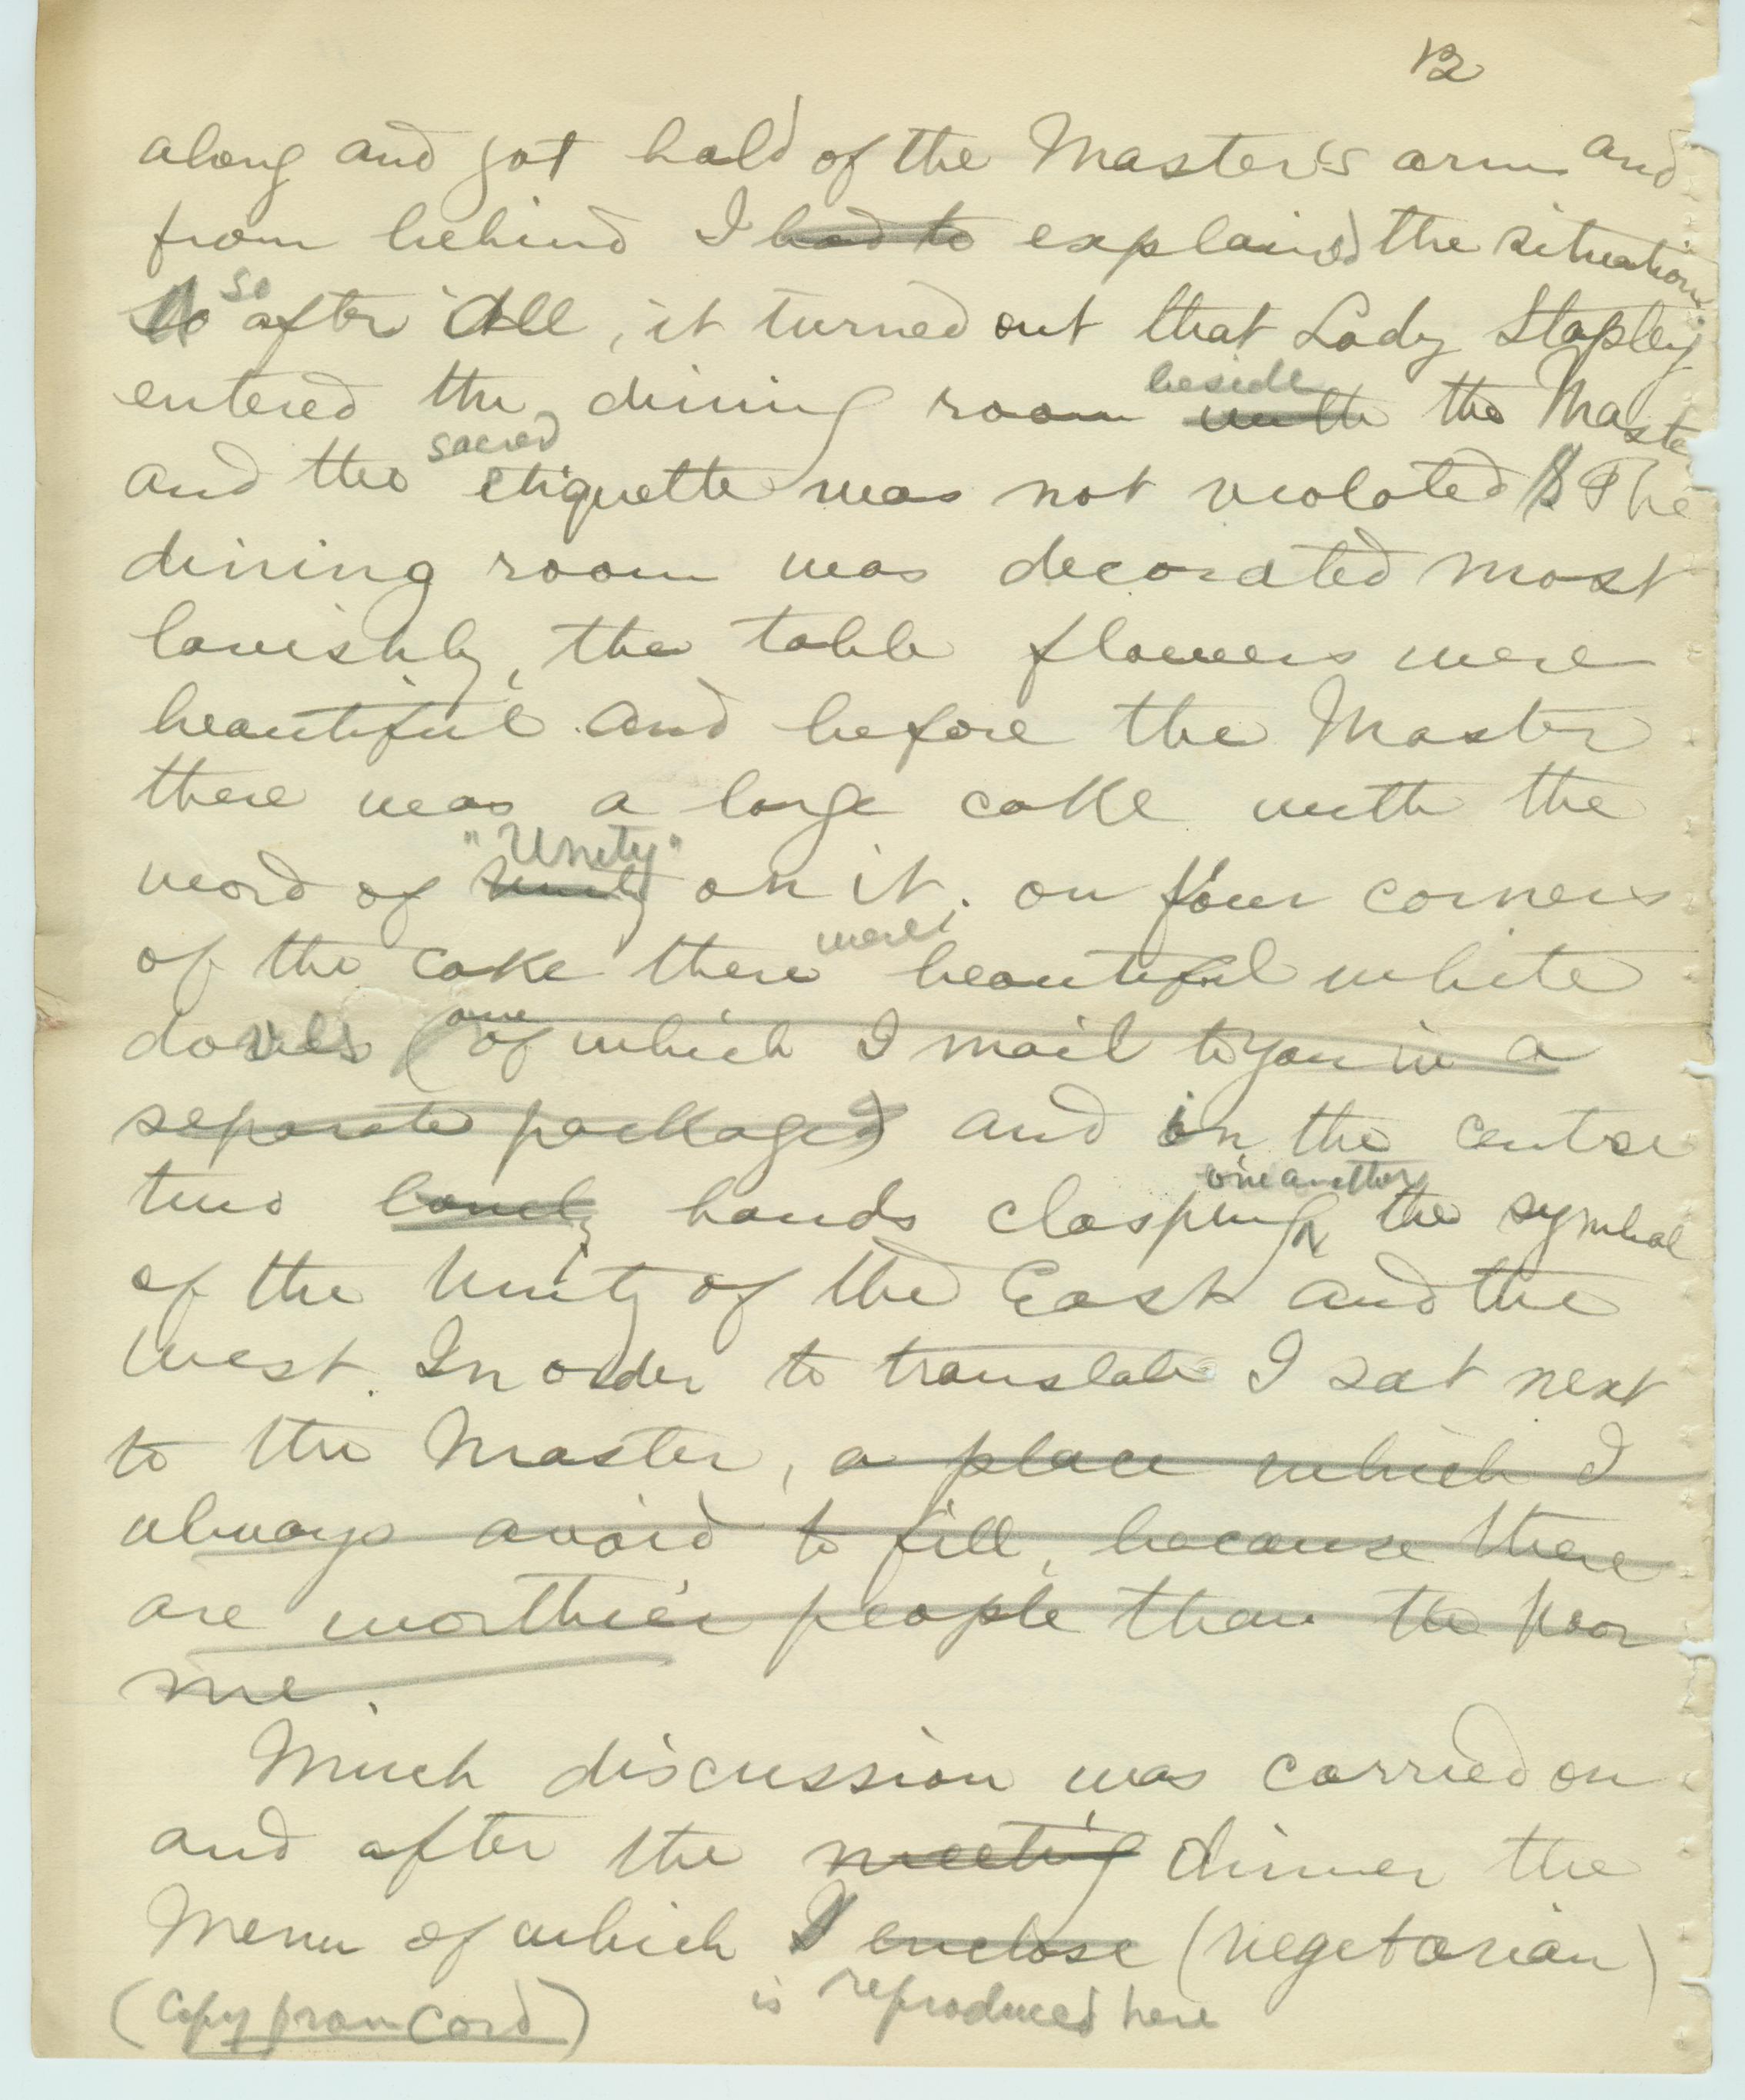 12
along and got hold of the Master's arm and
from behind I had to explained the situation
so
after all, it turned out that Lady Stapley
beside
entered the dining room with the Master
sacred
and the etiquette was not violated The
dining room was decorated most
lavishly, the table flowers were
beautiful and before the Master
there was a large cake with the
"Unity"
word of unity on it. on four corners
were
of the cake there beautiful white
one
doves (of which I mail to you in a
separate package) and in the centre
one another
two lovely hands clasping the symbol
of the Unity of the East and the
West. In order to translate I sat next
to the Master, a place which I
always avoid to fill, because there
are worthier people than the poor
me.
Much discussion was carried on
and after the meeting dinner the
Menu of which I enclose (vegetarian)
is reproduced here
(Copy from Card)